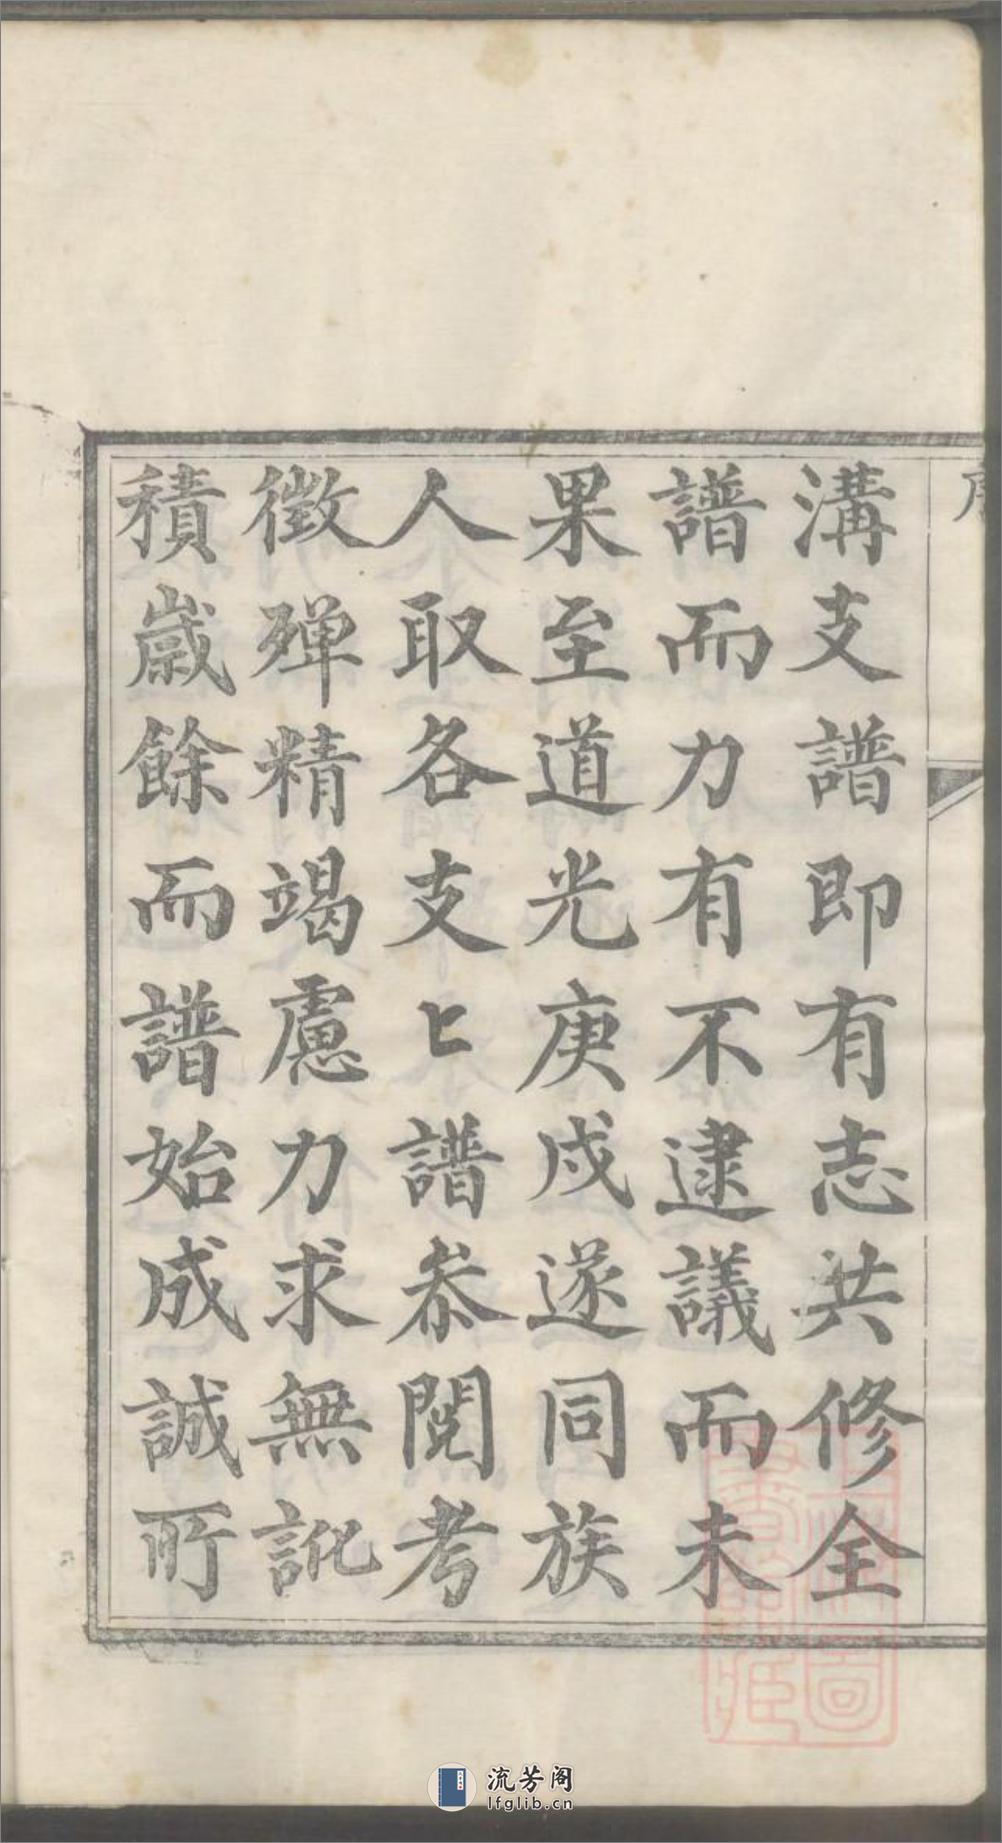 溝支譜即有志共修全
譜而力有不逮議而未
果至道光庚戌遂同族
人取各支〻譜叅閱考
徵殫精竭慮力求無訛
積歲餘而譜始成誠所
流芳阁
lfglib.cn